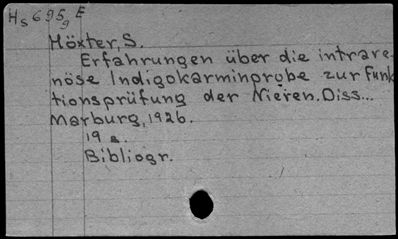 Hs 695g E
Höxter, S.
Erfahrungen über die intrave-
nöse Indigokarminprobe zur Funk
tionsprüfung der Nieren. Diss...
Marburg, 1926.
19 s.
Bibliogr.